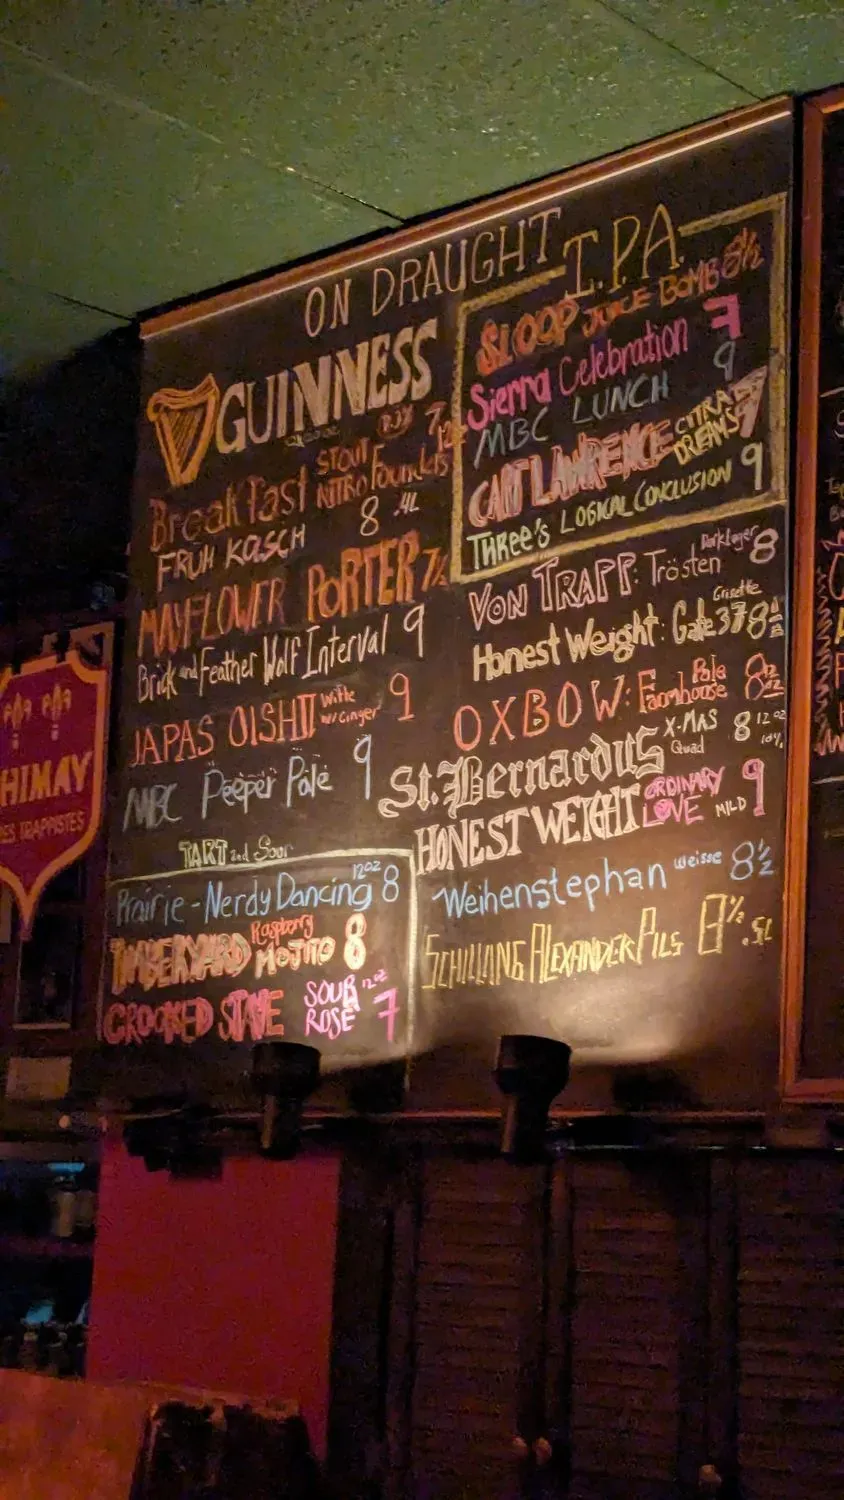 ON DRAUGHT
GUINNESS
Breakfast STOUT NITRO Founders 7
12oz
FRUH KOSCH 8 .4L
MAYFLOWER PORTER 7½
Brick and Feather Wolf Interval 9
JAPAS OISHII Witte w/Ginger 9
MBC Peeper Pale 9
TART and Sour
Prairie - Nerdy Dancing 12oz 8
TIMBERYARD Raspberry MOJITO 8
CROOKED STAVE SOUR ROSE 12oz 7
I.P.A.
SLOOP JUICE BOMB 8½
Sierra Celebration 7
MBC LUNCH 9
CAPT LAWRENCE CITRA DREAMS 7
THREE'S LOGICAL CONCLUSION 9
VON TRAPP: Trösten Dark Lager 8
Honest Weight: Gate 37 Grisette 8½
OXBOW: Pale Farmhouse 8½
St. Bernardus X-MAS Quad 8 12oz 10%
HONEST WEIGHT ORDINARY LOVE MILD 9
Weihenstephan weisse 8½
SCHILLING ALEXANDER PILS 8½ .5L
HIMAY
ES TRAPPISTES